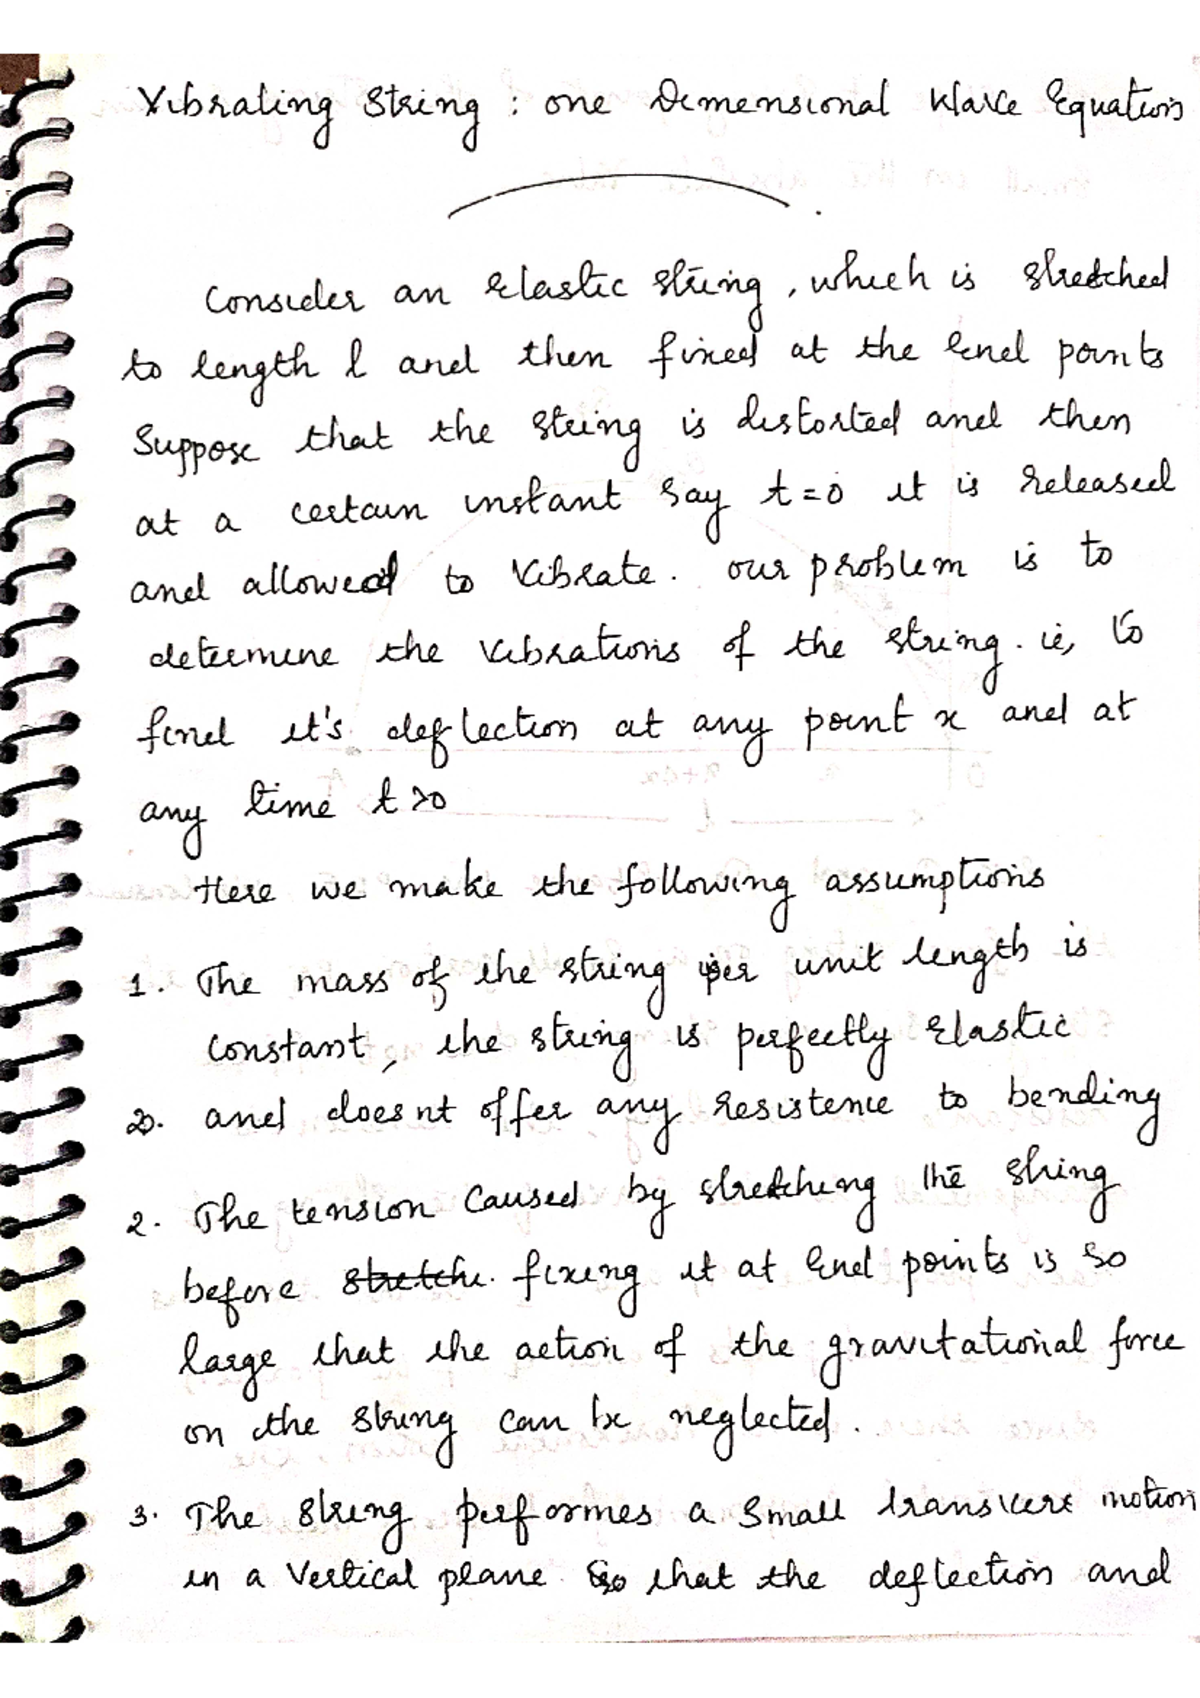 Vibrating string : one Dimensional Wave Equation
Consider an elastic string, which is stretched
to length l and then fixed at the end points
Suppose that the string is distorted and then
at a certain instant say t=0 it is released
and allowed to vibrate. our problem is to
determine the vibrations of the string. ie, to
find it's deflection at any point x and at
any time t>0
Here we make the following assumptions
1. The mass of the string per unit length is
constant, the string is perfectly elastic
2. and doesnt offer any resistence to bending
2. The tension caused by stretching the string
before stretche. fixing it at end points is so
large that the action of the gravitational force
on the string can be neglected.
3. The string performes a small transvere motion
in a vertical plane so that the deflection and